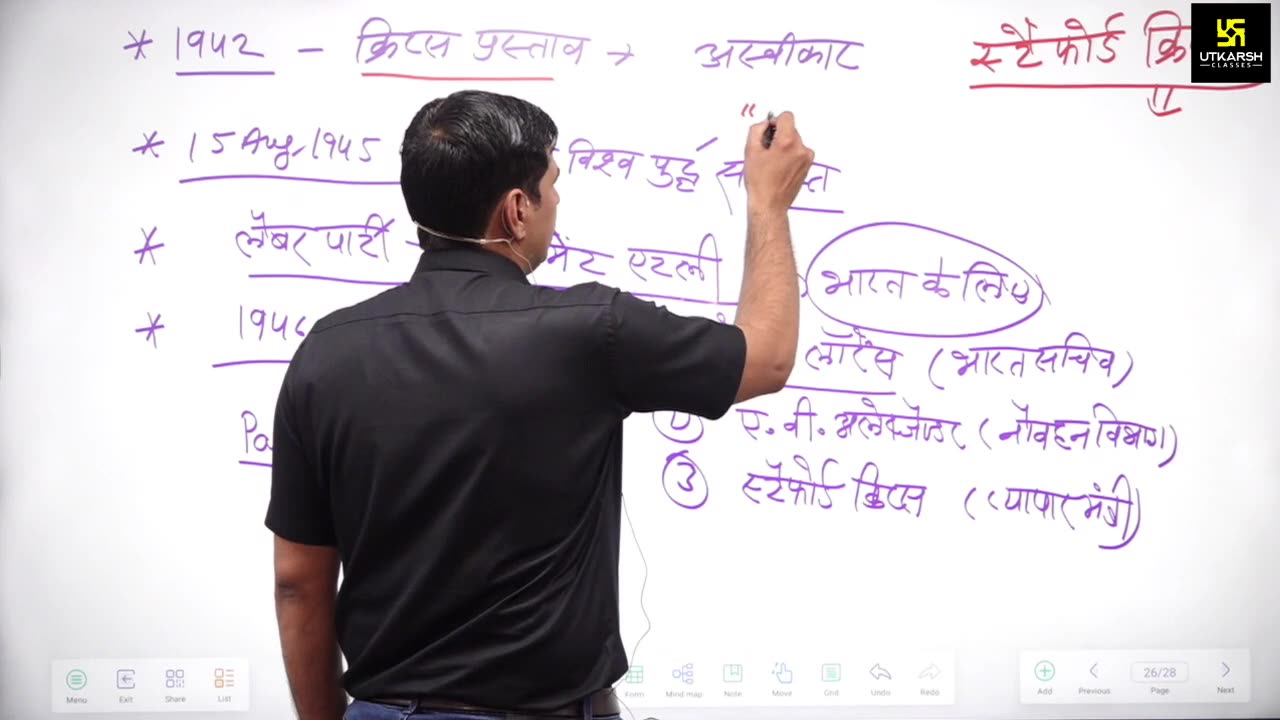 * 1942 - क्रिप्स प्रस्ताव → अस्वीकार
स्टैफोर्ड
UTKARSH
CLASSES
* 15 Aug, 1945 विश्व युद्ध
* लेबर पार्टी - मेंट एटली (भारत के लिए)
* 1946
लॉरेंस (भारत सचिव)
ए. वी. अलेक्जेण्डर (नौवहन विभाग)
③ स्टैफोर्ड क्रिप्स (व्यापार मंत्री)
Menu Exit Share List Form Mind map Note Move Grid Undo Redo Add Previous 26/28 Page Next